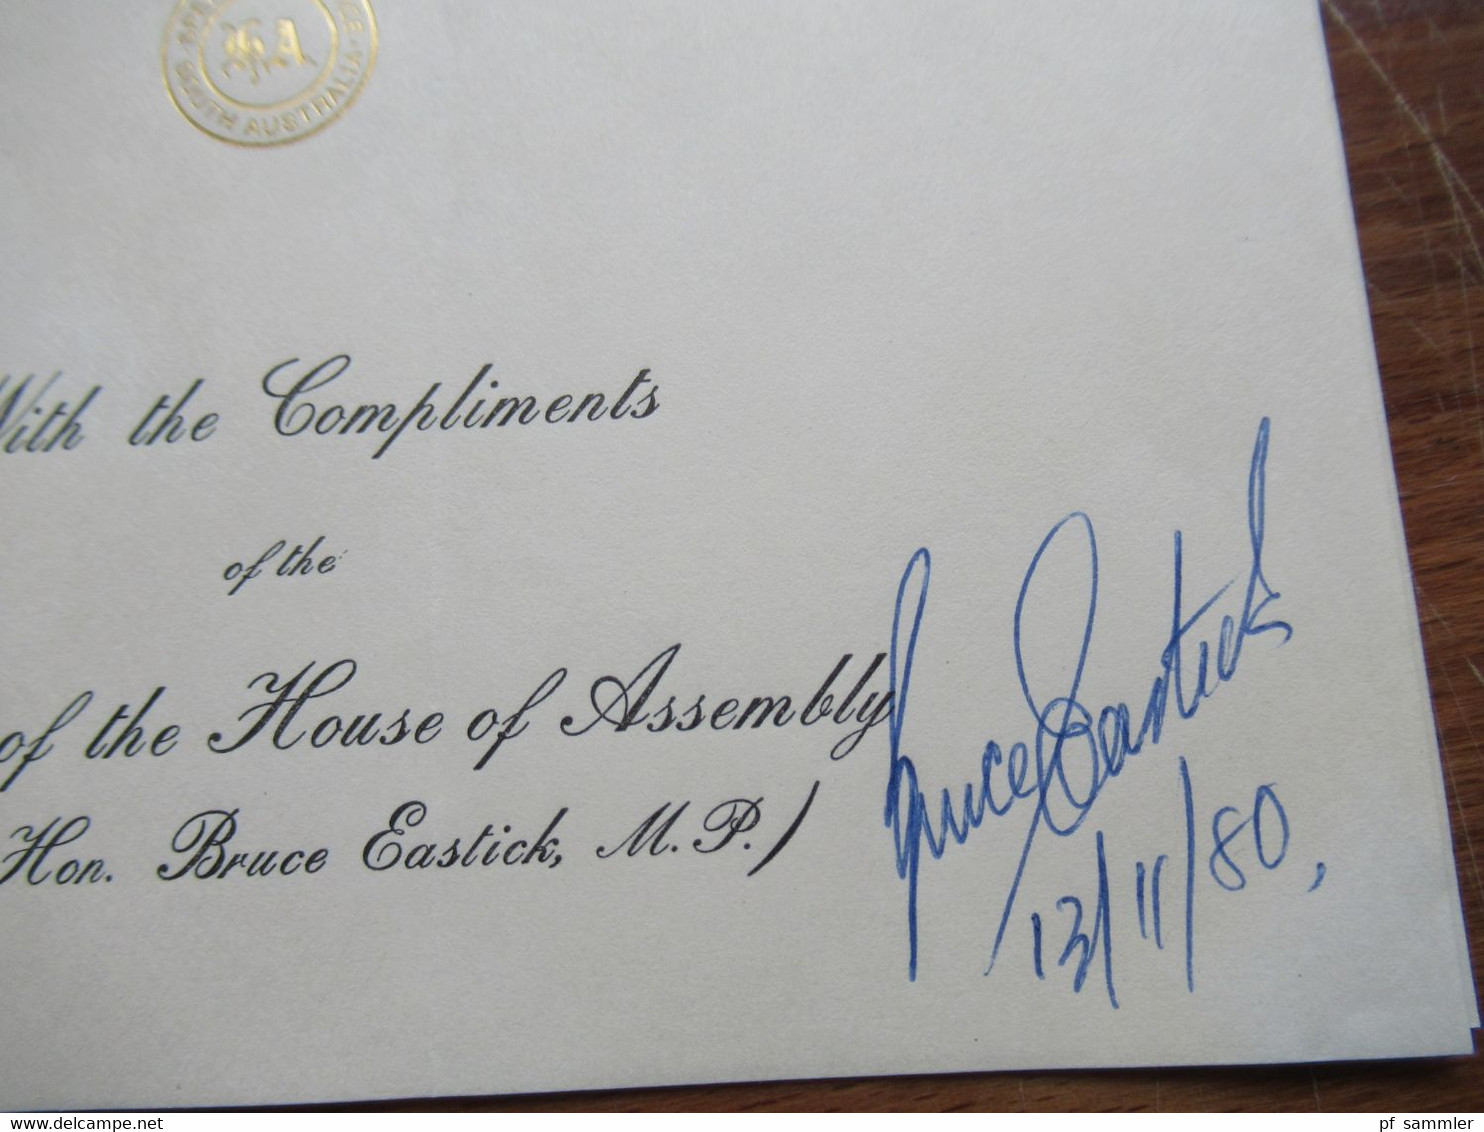 SOUTH AUSTRALIA
With the Compliments
of the
of the House of Assembly
Hon. Bruce Eastick, M.P.)
Bruce Eastick
13/11/80,
www.delcampe.net
pf_sammler